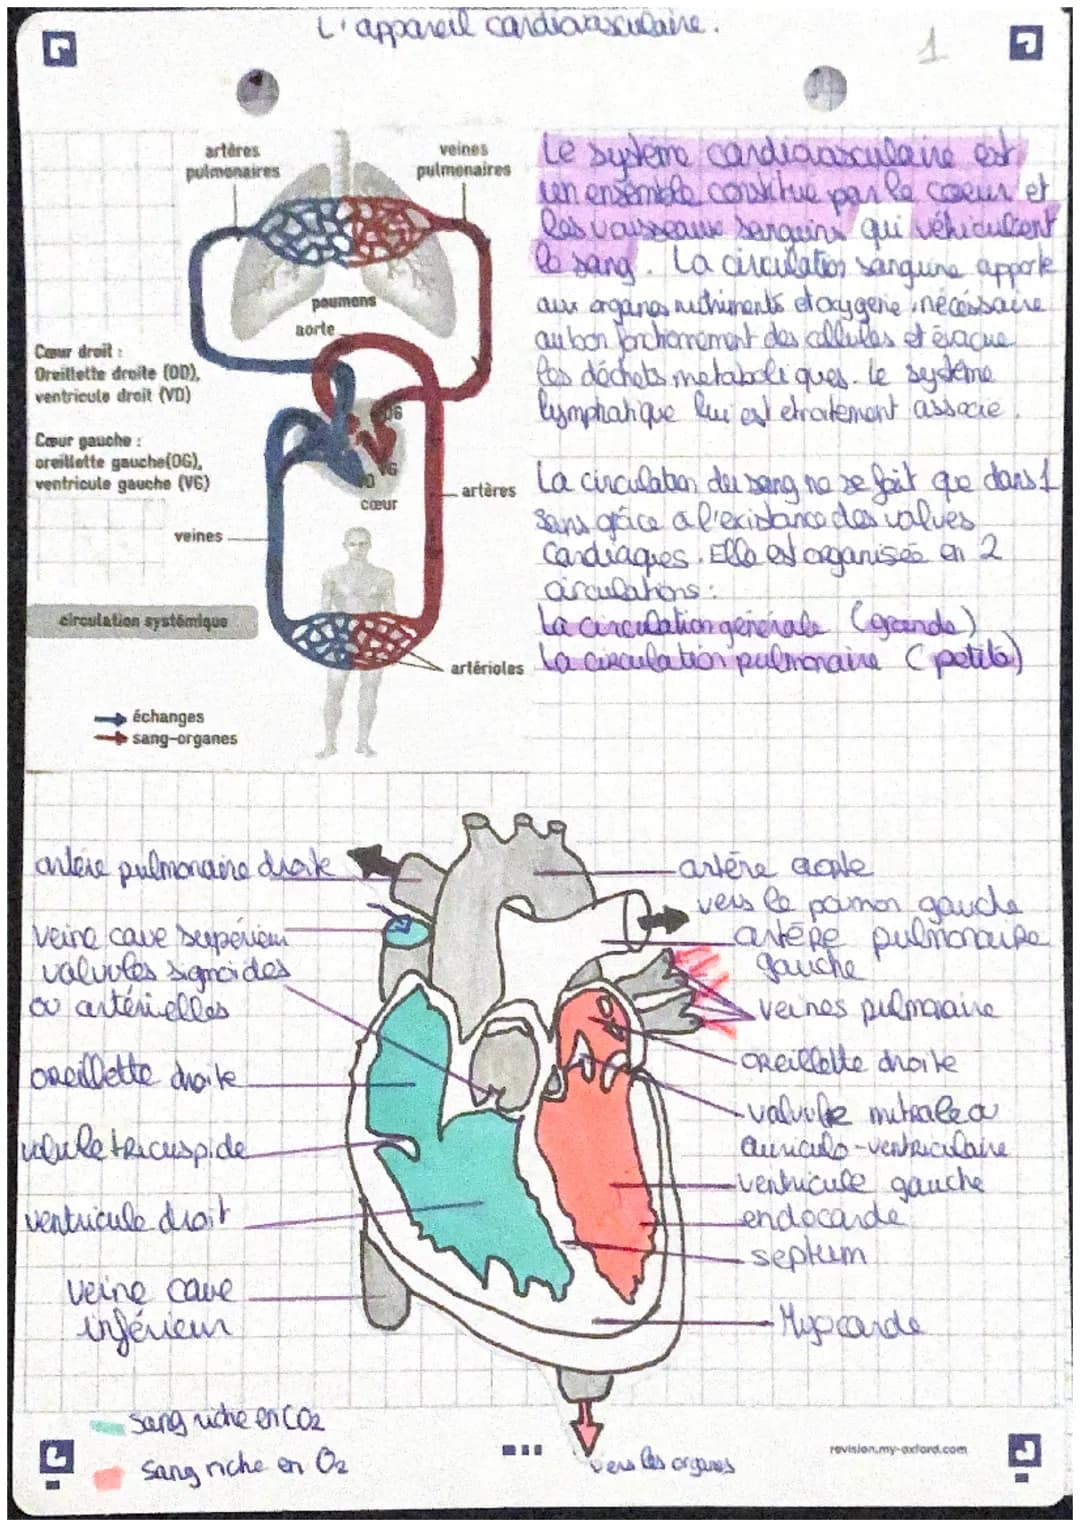 L'appareil cardiovasculaire.
1
artères
pulmonaires
veines
pulmonaires
poumons
aorte
Cœur droit :
Oreillette droite (OD),
ventricule droit (VD)
Cœur gauche :
oreillette gauche(OG),
ventricule gauche (VG)
OG
VG
cœur
artères
veines
circulation systémique
artérioles
échanges
sang-organes
Le système cardiovasculaire est
un ensemble constitue par le coeur et
les vaisseaux sanguins qui véhiculent
le sang. La circulation sanguine apporte
aux organes nutriments et oxygene nécéssaire
au bon fonctionnement des cellules et évacue
les déchets metaboliques. Le système
lymphatique lui est etroitement associe.
La circulation du sang ne se fait que dans 1
sens grâce a l'existance des valves
cardiaques. Elle est organisée en 2
circulations :
La circulation générale (grande)
La circulation pulmonaire (petite)
artère pulmonaire droite
veine cave superieur
valvules sigmoides
ou artérielles
oreillette droite
valvule tricuspide
ventricule droit
veine cave
inférieur
artère aorte
vers le poumon gauche
artère pulmonaire
gauche
veines pulmonaire
oreillette droite
valvule mitrale ou
auriculo-ventriculaire
ventricule gauche
endocarde
septum
Myocarde
sang riche en CO2
sang riche en O2
vers les organes
revision.my-oxford.com